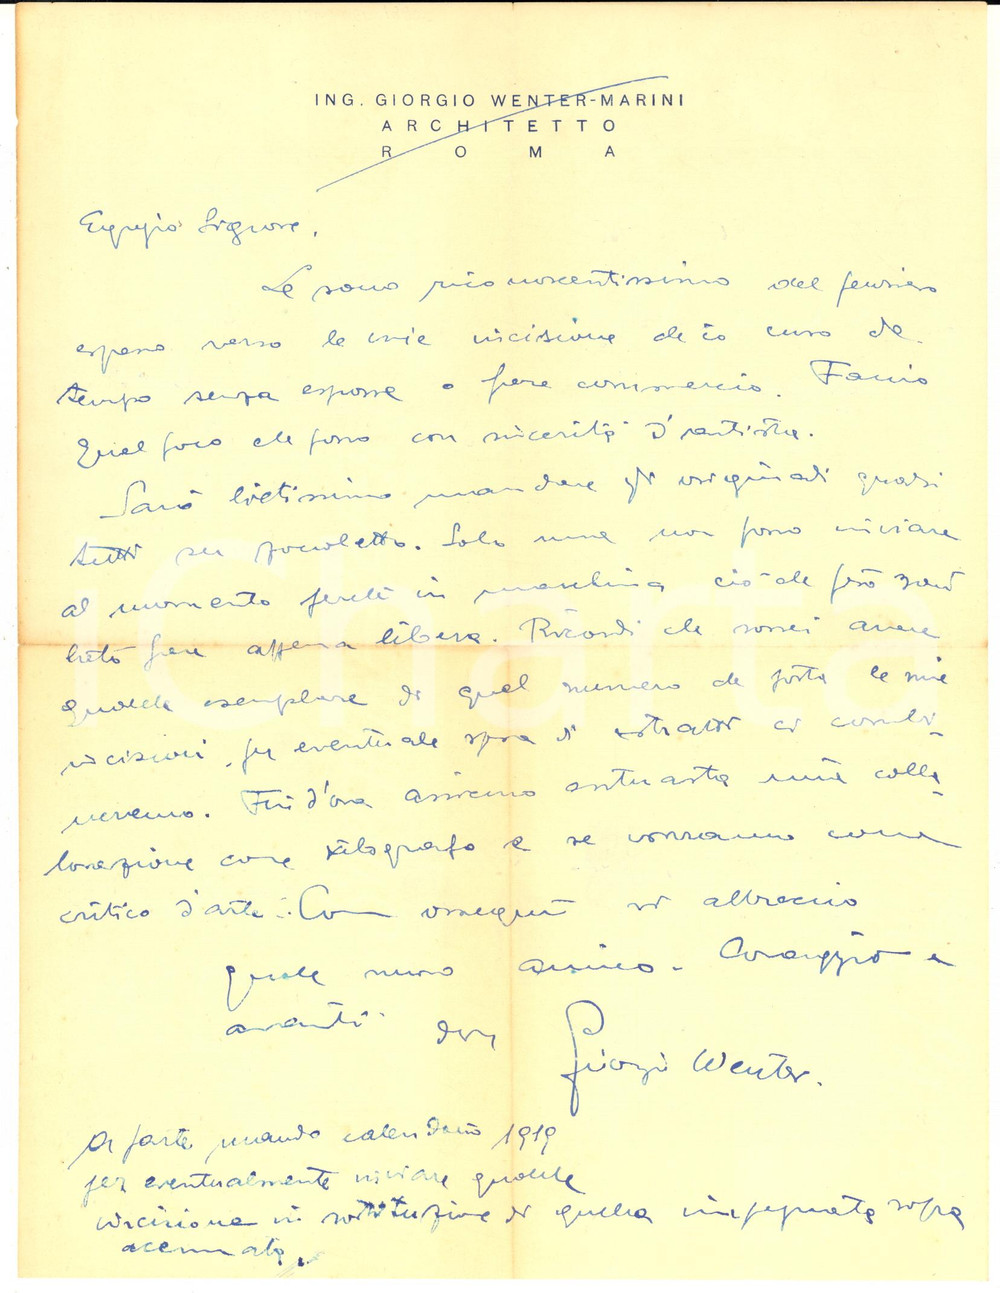 ING. GIORGIO WENTER-MARINI
ARCHITETTO
ROMA
Egregio Signore,
Le sono riconoscentissimo del pensiero
espresso verso le mie incisione che io curo da
tempo senza esporre o fare commercio. Faccio
quel poco che posso con sincerità d'artista.
Sarò lietissimo mandare gli originali quasi
tutti su zoccoletto. Solo una non posso inviare
al momento perchè in macchina ciò che però
fare appena libera. Ricordi che vorrei avere
qualche esemplare di quel numero che porta le mie
incisioni, per eventuale spesa di estratti ci combi-
neremo. Fin d'ora assicuro entusiasta mia colla-
borazione come xilografo e se vorranno come
critico d'arte. Con ossequi
quale nuovo amico. Coraggio e
avanti dev
Giorgio Wenter.
A parte mando calendario 1919
per eventualmente inviare qualche
incisione in sostituzione di quella impegnata sopra
accennata.
iCharta